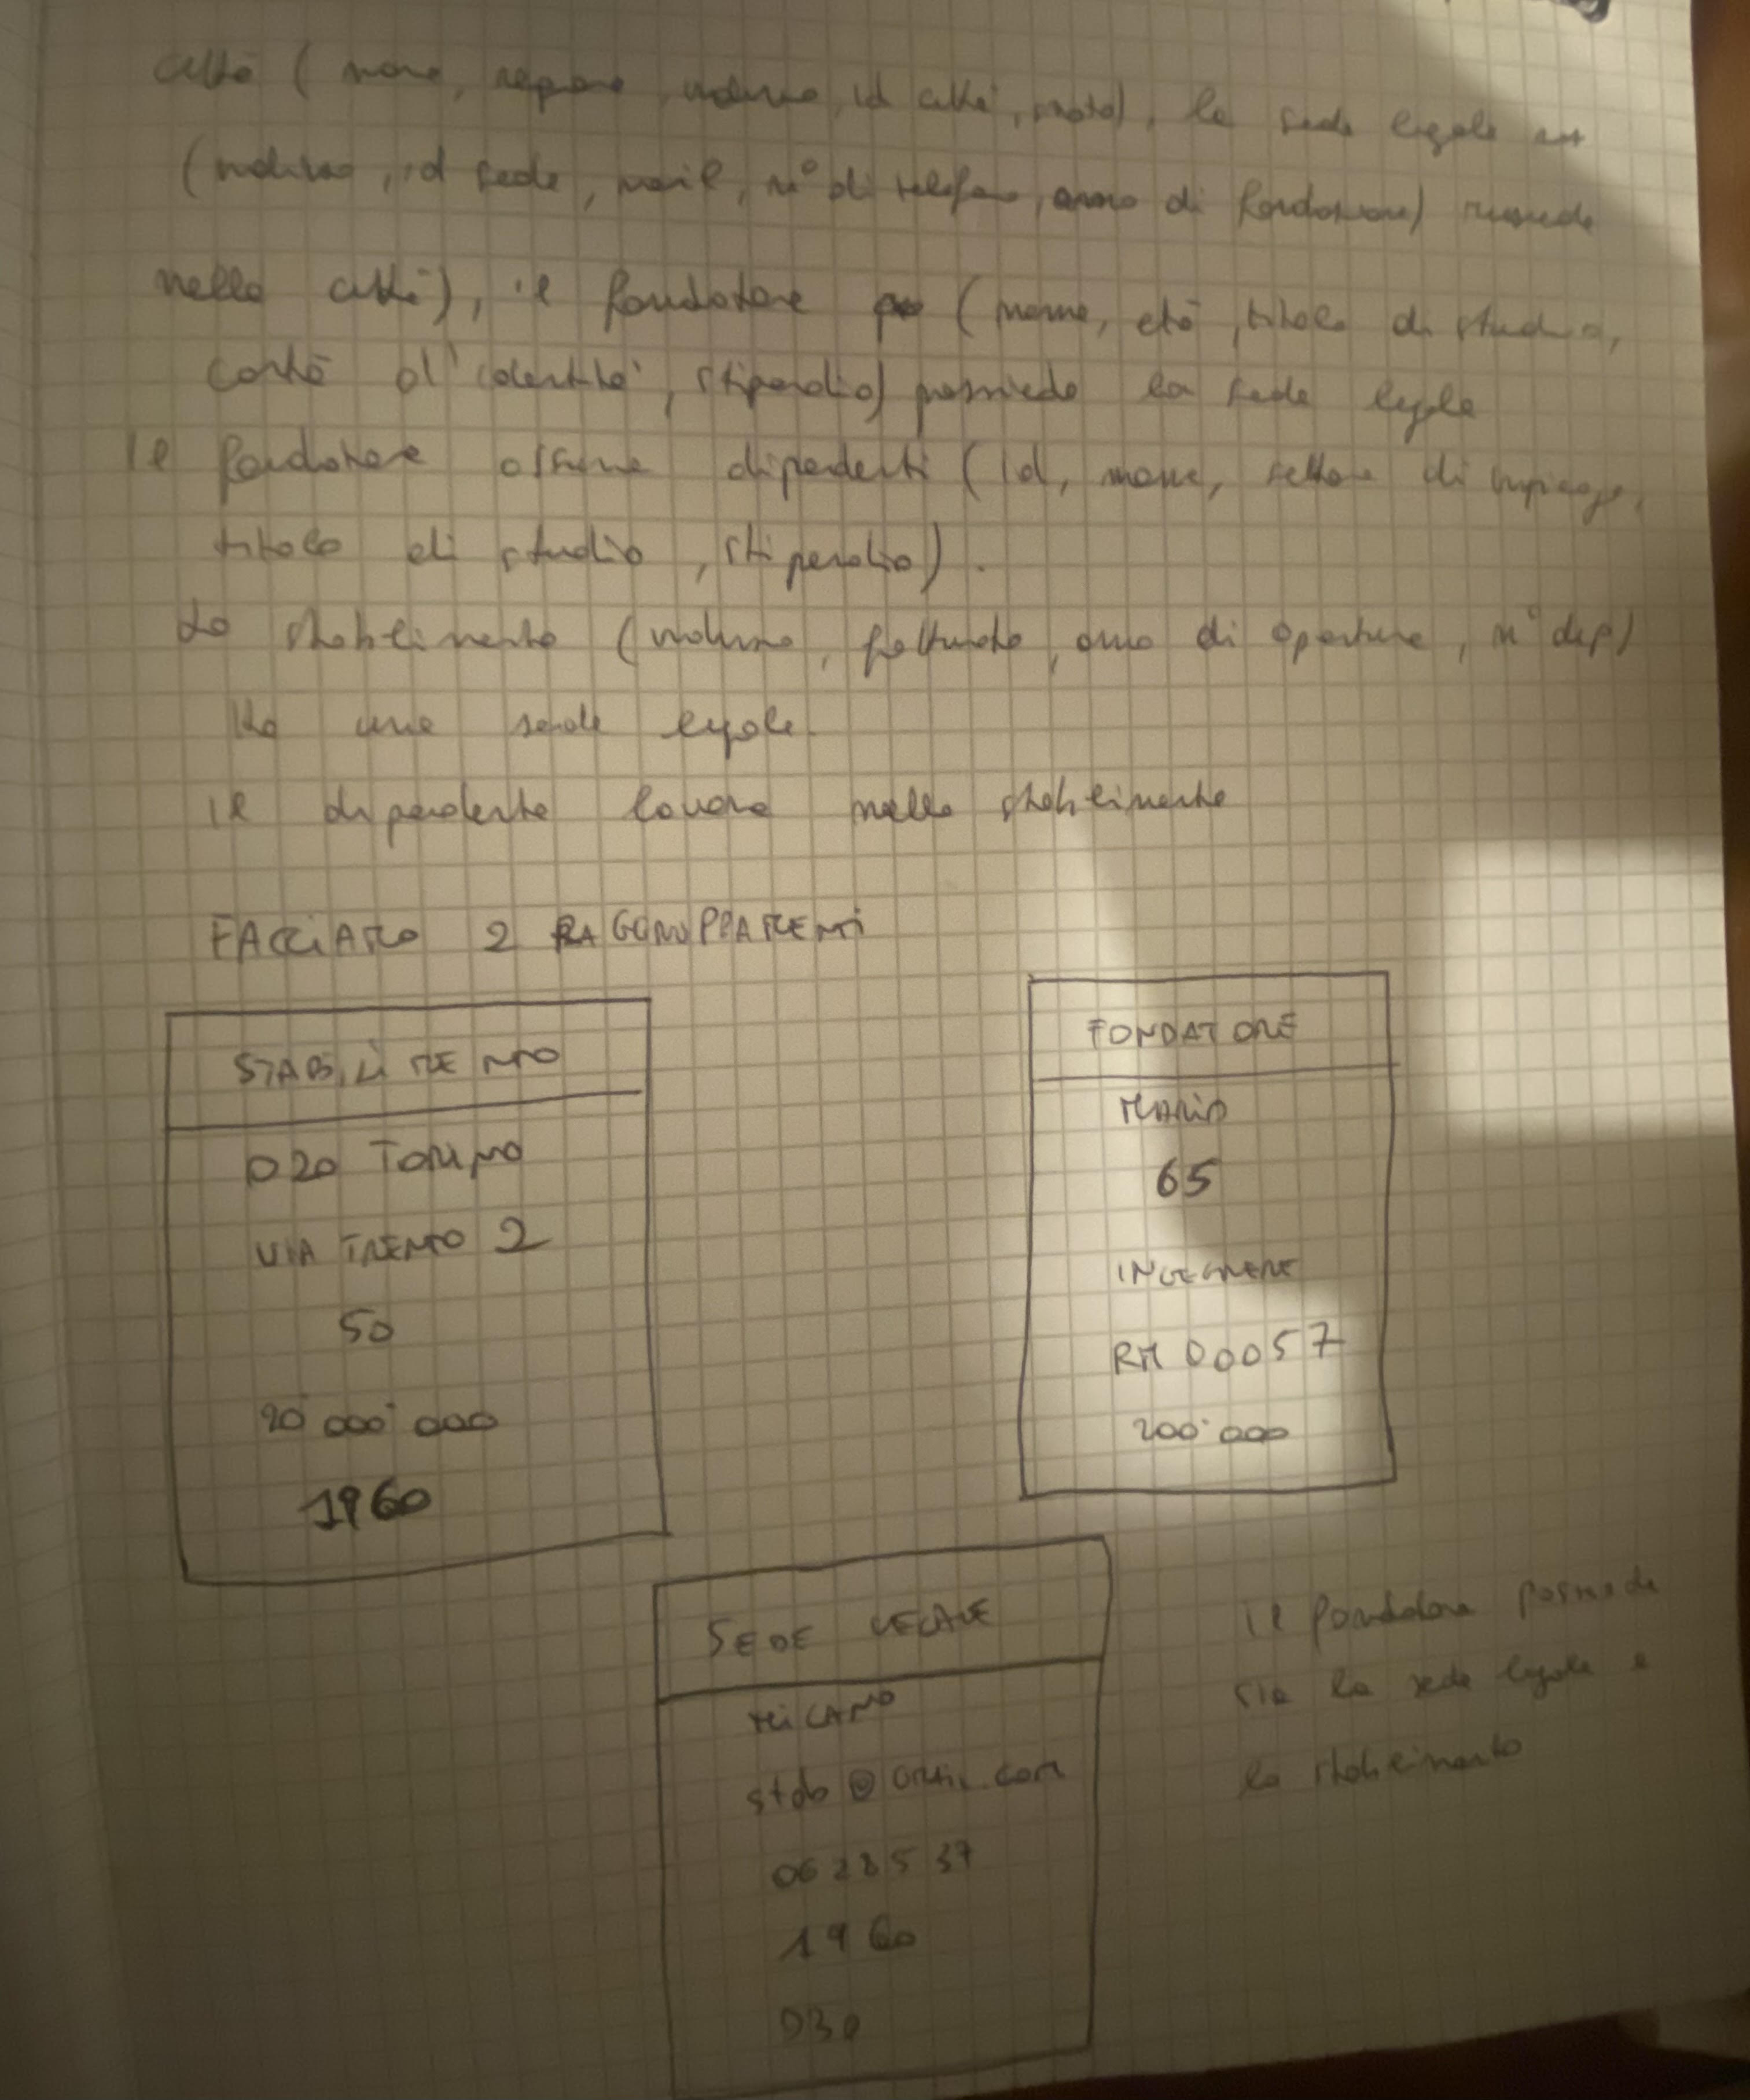 città (nome, regione, indirizzo, id città, stato), la sede legale
(indirizzo, id sede, mail, n° di telefono, anno di fondazione) risiede
nella città), il fondatore (nome, età, titolo di studio,
carta d'identità, stipendio) possiede la sede legale
il fondatore assume dipendenti (id, nome, settore di impiego,
titolo di studio, stipendio).
Lo stabilimento (indirizzo, fatturato, anno di apertura, n° dip)
ha una sede legale.
il dipendente lavora nello stabilimento
FACCIAMO 2 RAGGRUPPAMENTI
STABILIMENTO
020 TORINO
VIA TRENTO 2
50
20'000'000
1960
FONDATORE
MARIO
65
INGEGNERE
RM 00057
200'000
SEDE LEGALE
MILANO
0628537
1960
030
il fondatore possiede
sia la sede legale e
lo stabilimento